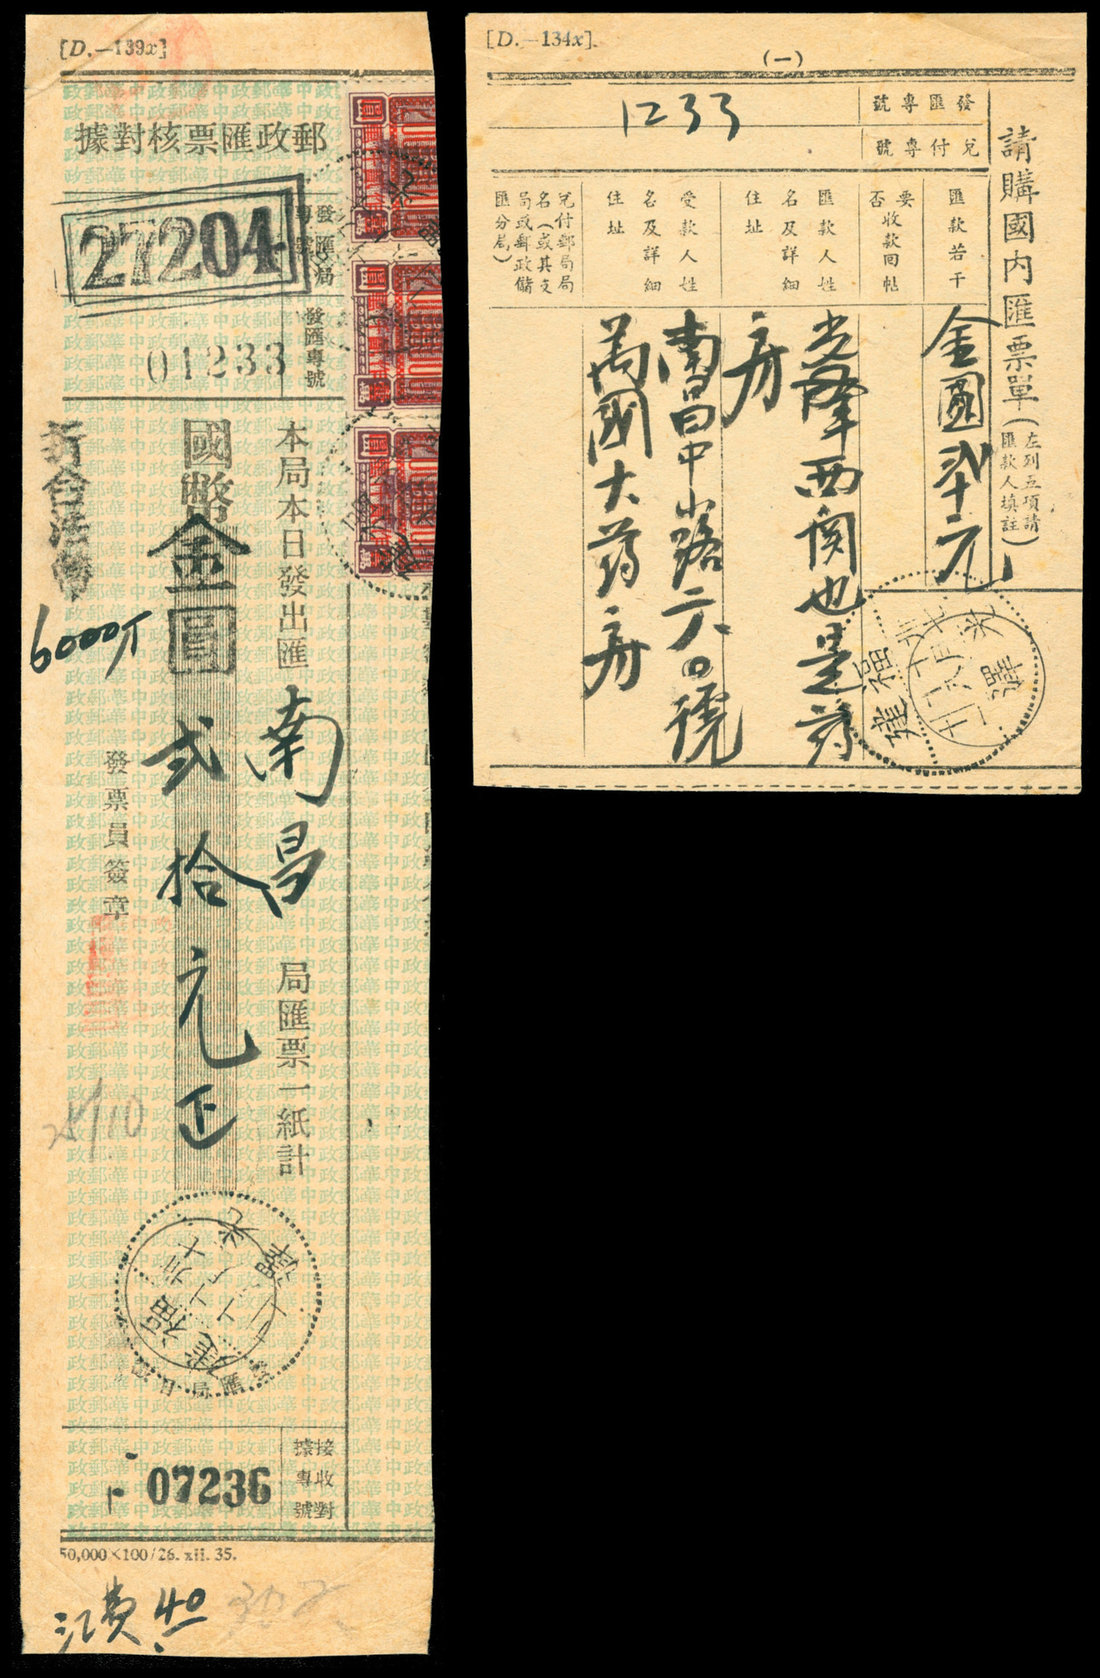 [D.—139x]
郵政匯票核對據
發匯局
專號
27204
發匯專號
01233
本局本日發出匯
南昌
局匯票一紙計
國幣金圓
弍拾元正
折合法幣
6000万
發票員簽章
接收對
據專號
07236
50,000×100/26. xii. 35.
40
[D.—134x].
(一)
請購國內匯票單
(左列五項請
匯款人填註)
發匯專號
1233
兌付專號
匯款若干
金圓弍拾元
要收款回帖
否
匯款人姓
名及詳細
住址
光澤西関也是药
房
受款人姓
名及詳細
住址
南昌中山路六〇號
萬國大药房
兌付郵局局
名(或其支
局或郵政儲
匯分局)
福建
光澤